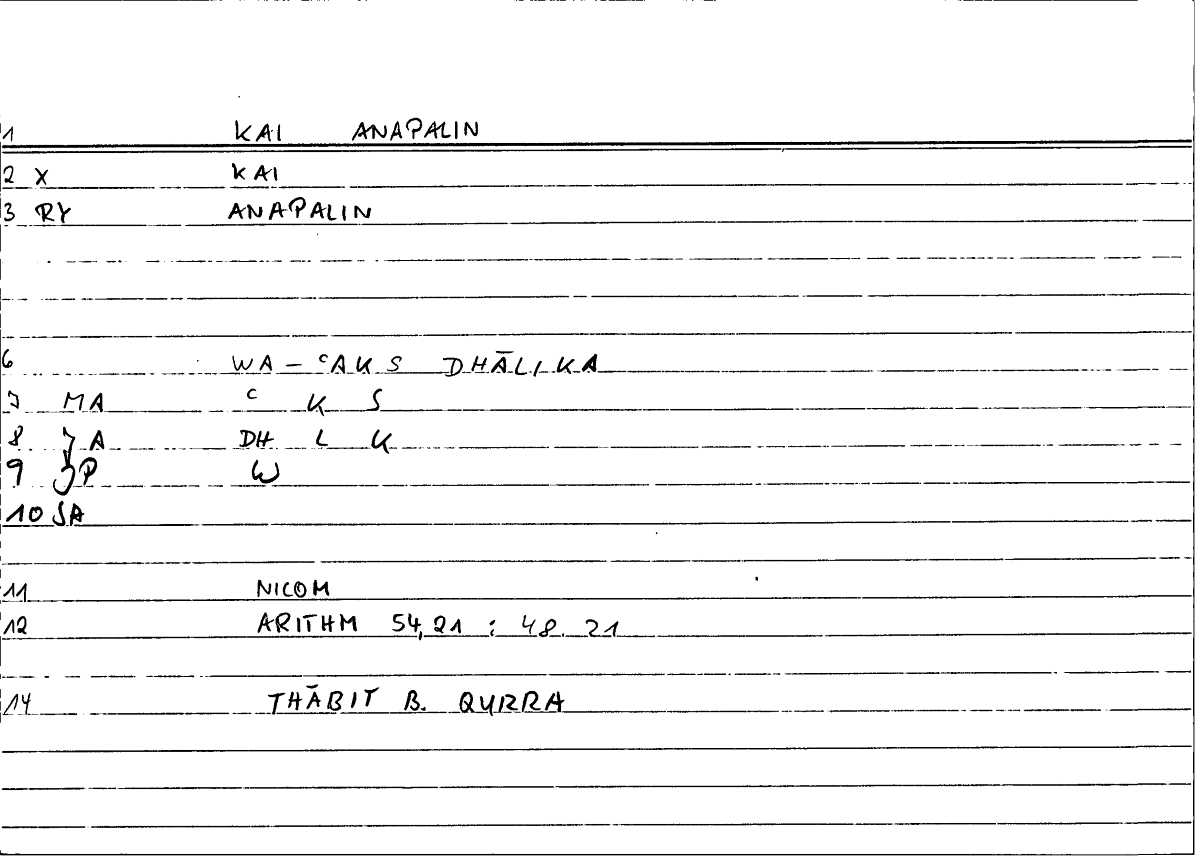 1 KAI ANAPALIN
2 X KAI
3 RY ANAPALIN
6 WA – ʿAKS DHĀLIKA
7 MA ʿ K S
8 JA DH L K
9 JP W
10 SA
11 NICOM
12 ARITHM 54,21 : 48.21
14 THĀBIT B. QURRA